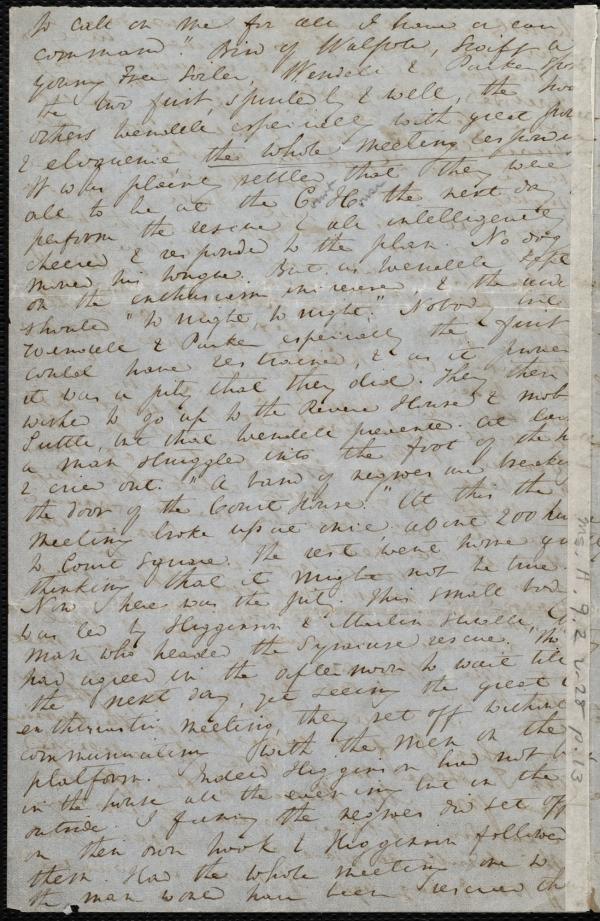 to call on me for all I have or can
command." Bird of Walpole, Swift a
young Free Soiler, Wendell & Parker spoke
the two first, spiritedly & well, the two
others Wendell especially with great power
& eloquence the whole meeting responding
It was plainly settled that they were
all to be at the C. H. the next day
perform the rescue & all intelligently
cheered & responded to the plan. No dog
moved his tongue. But as Wendell
on the enthusiasm increased, & the
shouted "to night to night." Nobody
Wendell & Parker especially the first
could have restrained, & as it proved
it was a pity that they did. They then
wished to go up to the Revere House & mob
Suttle, but that Wendell prevented. At last
a man struggled into the foot of the
& cried out. "A band of negroes are breaking
the door of the Court House." At this the
meeting broke up at once, about 200
to Court Square. The rest went home
thinking that it might not be true.
Now here was the pity. This small body
was led by Higginson & Martin Stowell,
man who headed the Syracuse rescue. Tho
had agreed in the afternoon to wait till
the next day, yet seeing the great &
enthusiastic meeting, they set off without
communicating with the men on the
platform. Indeed Higginson had not been
in the house all the evening but in the
outside. I fancy the negroes did set off
on their own hook & Higginson followed
them. Had the whole meeting gone to
the man would have been rescued
Ms. A. 9. 2 v. 28 p. 13